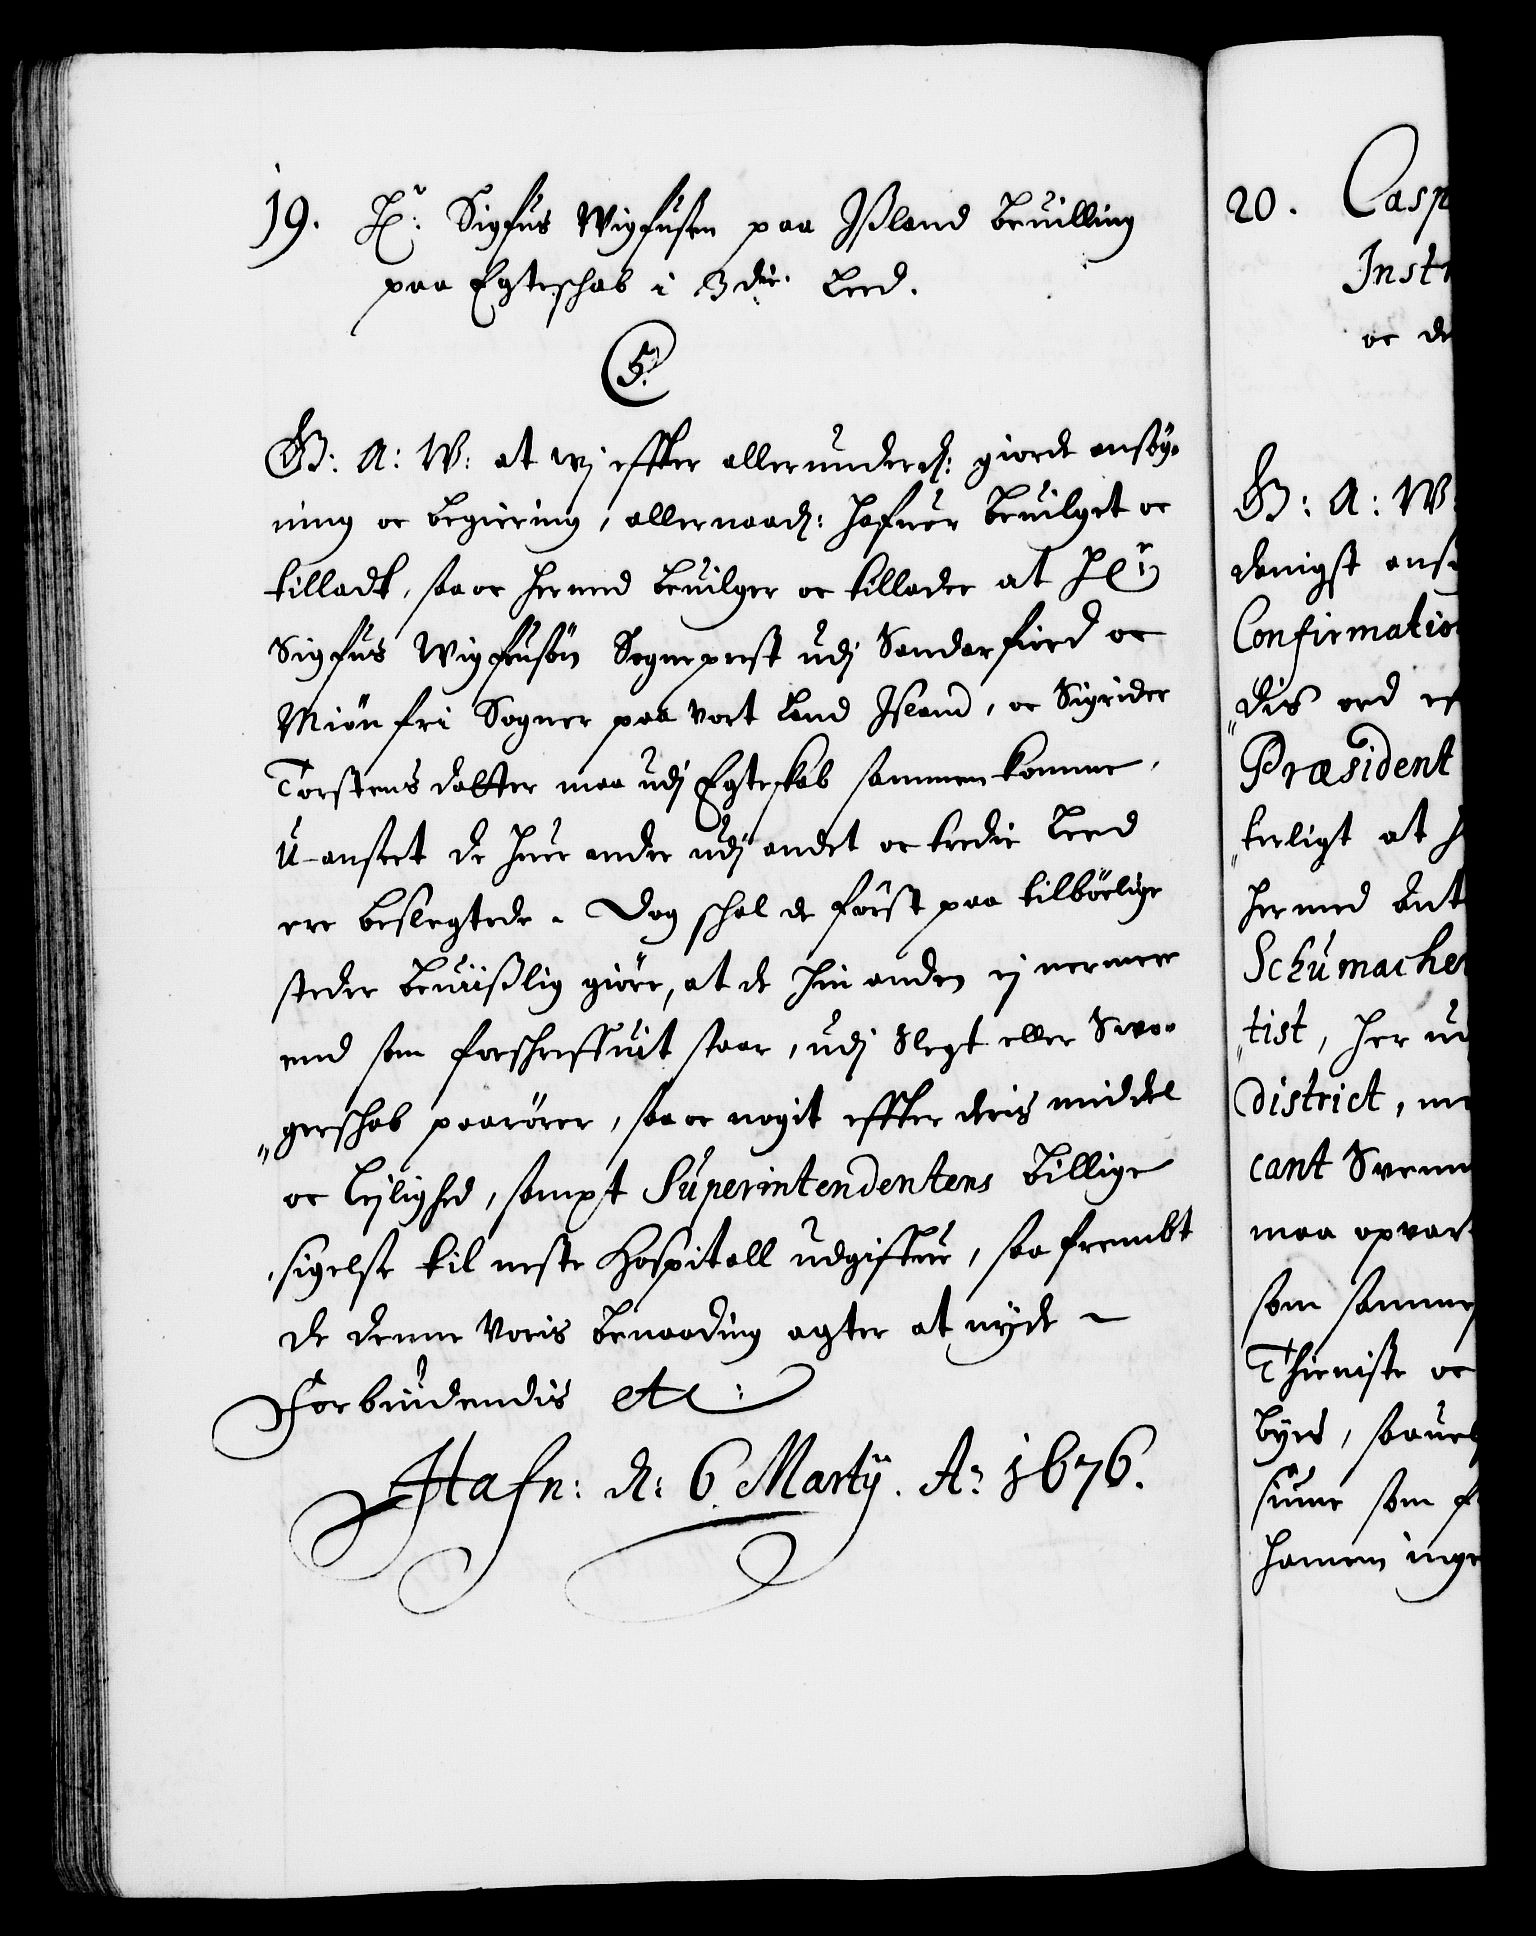 19. Hr: Sigfus Wigfusen paa Ißland bevilling
paa Egteschab i 3die Leed.
C5.
G: A: W: at wj effter allerunderd: giorde ansög-
ning oc begiering, allernaad: hafver bevilget oc
tilladt, saa oc hermed bevilger oc tillader at Hr:
Sigfus Wigfusön Sogneprest udj Sandarfiord oc
Miön fri Sogner paa vort Land Island, oc Sigrider
Torstens datter maa udj Egteskab sammenkomme,
U-anseet de hver andre udj andet oc tredie Leed
ere beslegtede. Dog schal de först paa tilbörlige
steder bevißlig giöre, at de hin anden ej nermere
end som forschreffvit staar, udj Slegt eller Swo-
"gerschab paarörer, saa oc nogit effter deris middel
oc lejlighed, sampt Superintendentens billige
sigelse til neste Hospitall udgiffve, saa frembt
de denne Voris benaading agter at nyde.
Forbiudendis etc:
Hafn: d: 6 Martij. Ao 1676.
20. Casp
Inst
oc de
G: A: W:
danigst ans
Confirmatio
dis ord ef
Præsident
"terligt at h
hermed ant
Schumacher
"tist, her ud
district, me
cant Svenn
maa opvar
som samme
Thieniste oc
byes, saavel
som f
hannem inge